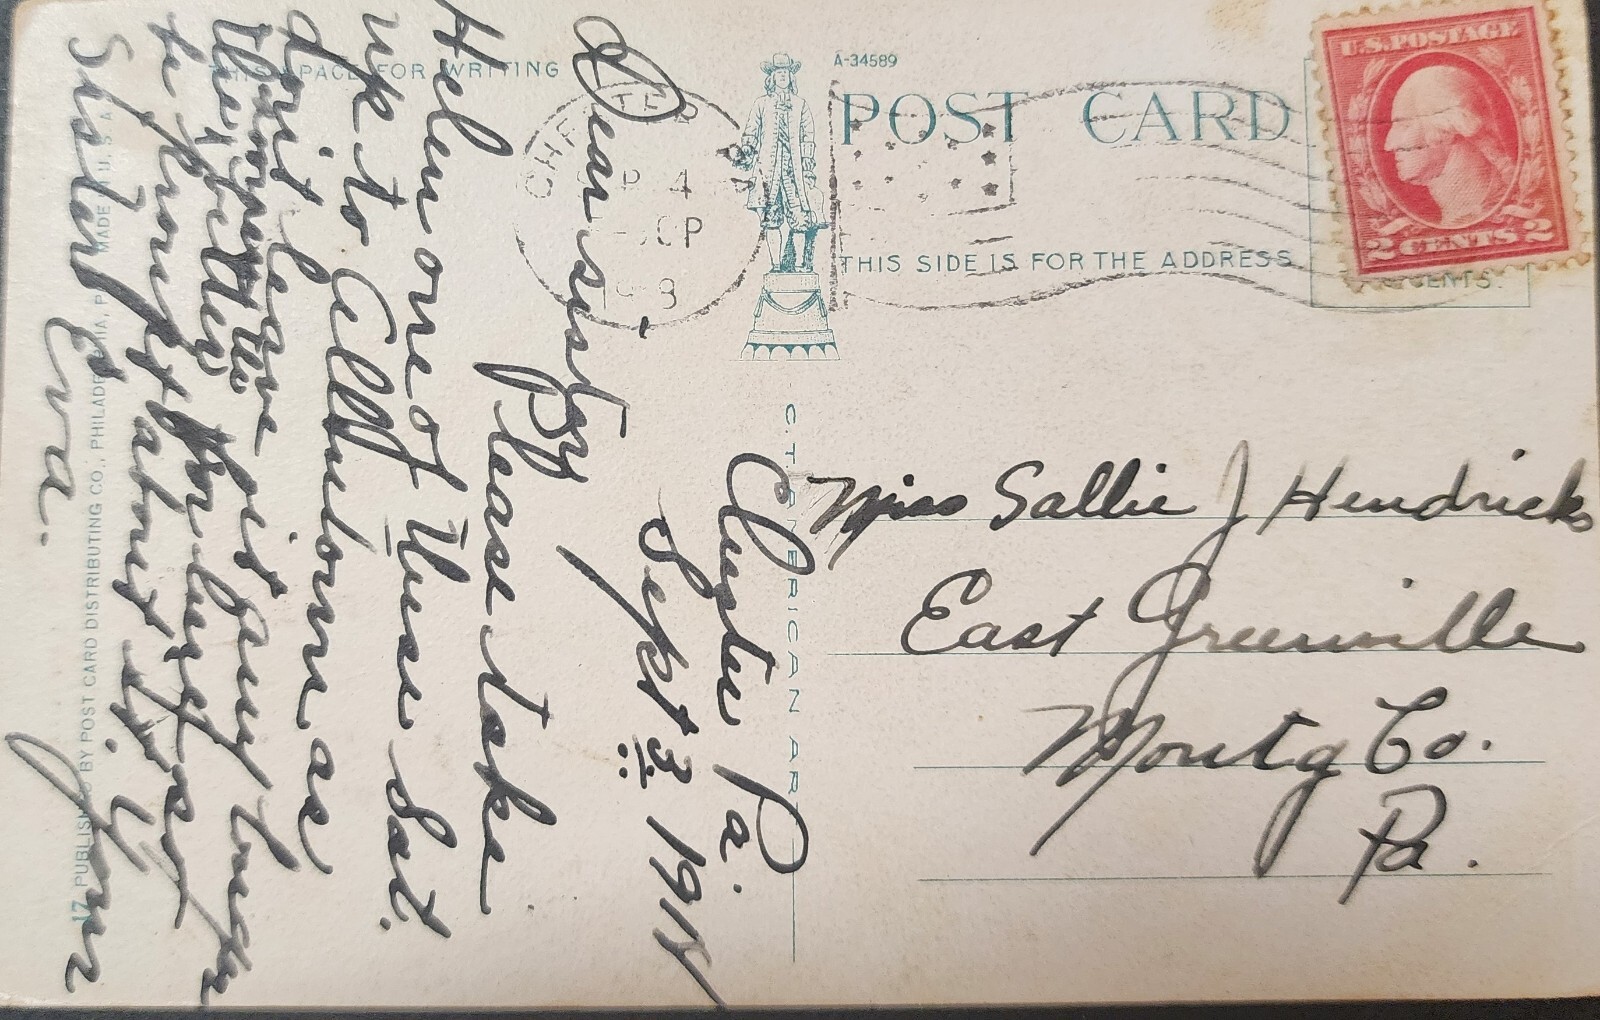 THIS SPACE FOR WRITING
A-34589
POST CARD
THIS SIDE IS FOR THE ADDRESS
U.S. POSTAGE
2 CENTS 2
CENTS.
CHESTER
SEP 4
30P
1918
C.T. AMERICAN ART
17 PUBLISHED BY POST CARD DISTRIBUTING CO., PHILADELPHIA, PA. MADE IN U.S.A.
Chester Pa.
Sept 3 1918
Dear sister
Please take
Helen one of these Sat.
up to Allentown as
dont leave it any longer
to
about it. Your
Sister Eva.
Miss Sallie J Hendricks
East Greenville
Montg Co.
Pa.